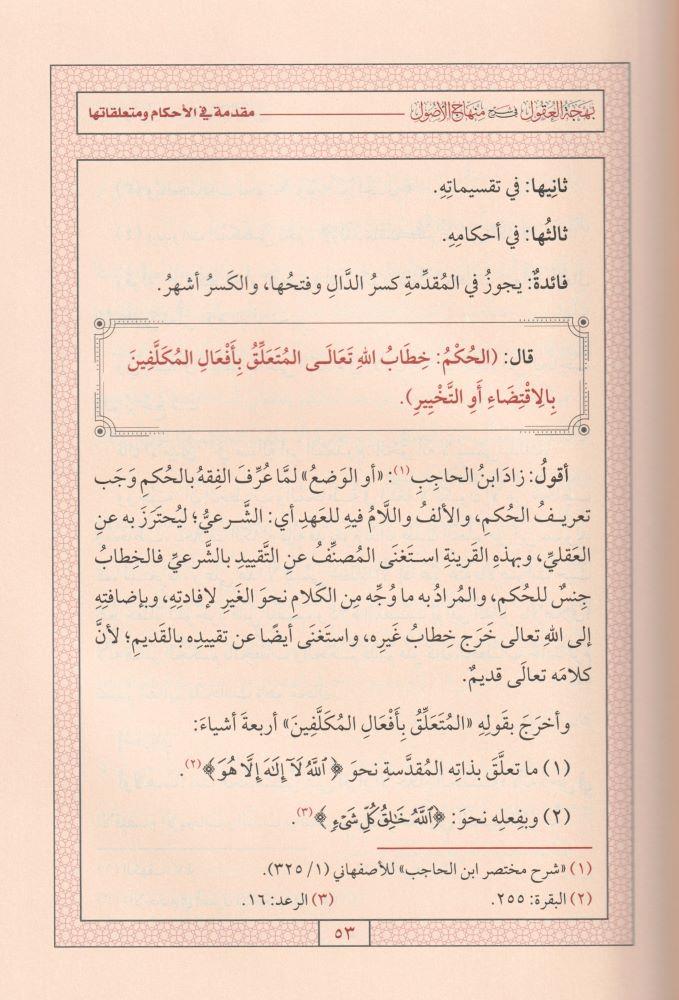 بهجة العقول في شرح منهاج الأصول
مقدمة في الأحكام ومتعلقاتها
ثانِيها: في تقسيماتِهِ.
ثالثُها: في أحكامِهِ.
فائدةٌ: يجوزُ في المُقدِّمةِ كسرُ الدَّالِ وفتحُها، والكَسرُ أشهرُ.
قال: (الحُكْمُ: خِطَابُ اللهِ تَعَالَى المُتَعَلِّقُ بِأَفْعَالِ المُكَلَّفِينَ
بِالِاقْتِضَاءِ أَوِ التَّخْيِيرِ).
أقولُ: زادَ ابنُ الحاجِبِ(١): «أو الوَضعُ» لمَّا عُرِّفَ الفِقهُ بالحُكمِ وَجَب
تعريفُ الحُكمِ، والألفُ واللَّامُ فيهِ للعَهدِ أي: الشَّرعيُّ؛ ليُحتَرَزَ به عنِ
العَقليِّ، وبهذِهِ القَرينةِ استَغنَى المُصنِّفُ عنِ التَّقييدِ بالشَّرعيِّ فالخِطابُ
جِنسٌ للحُكمِ، والمُرادُ به ما وُجِّه مِن الكَلامِ نحوَ الغَيرِ لإفادتِهِ، وبإضافتِهِ
إلى اللهِ تعالى خَرَج خِطابُ غَيرِه، واستَغنَى أيضًا عن تقييدِه بالقَديمِ؛ لأنَّ
كلامَه تعالَى قديمٌ.
وأخرَجَ بقَولِهِ «المُتَعَلِّقُ بِأَفْعَالِ المُكَلَّفِينَ» أربعةَ أشياءَ:
(١) ما تعلَّقَ بذاتِه المُقدَّسةِ نحوَ ﴿ ٱللَّهُ لَآ إِلَـٰهَ إِلَّا هُوَ ﴾(٢).
(٢) وبفِعلِه نحوَ: ﴿ٱللَّهُ خَـٰلِقُ كُلِّ شَىْءٍ ﴾(٣).
(١) «شرح مختصر ابن الحاجب» للأصفهاني (١/ ٣٢٥).
(٢) البقرة: ٢٥٥. (٣) الرعد: ١٦.
٥٣